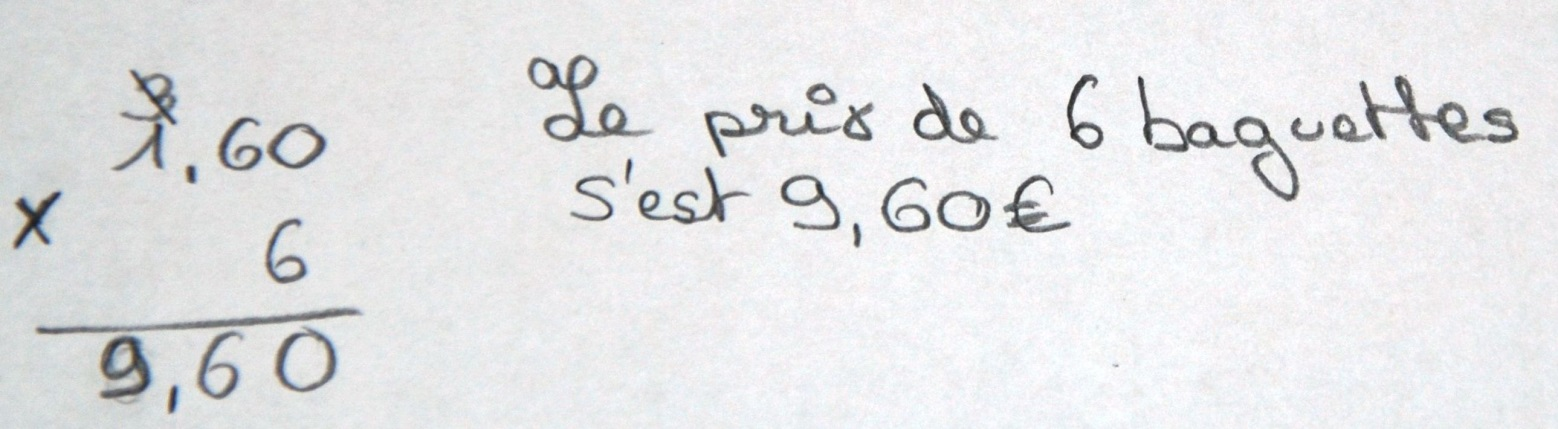 3
1,60
x 6
9,60
Le prix de 6 baguettes
s'est 9,60€